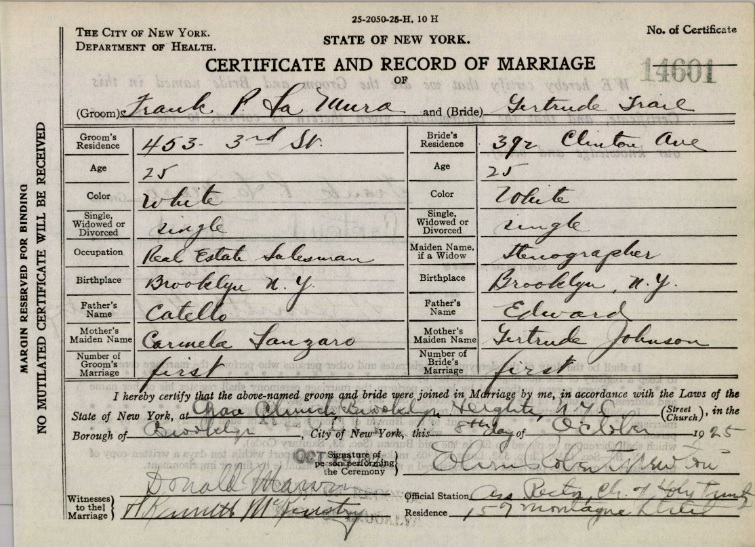 25-2050-25-H. 10 H
THE CITY OF NEW YORK.
DEPARTMENT OF HEALTH.
STATE OF NEW YORK.
No. of Certificate
CERTIFICATE AND RECORD OF MARRIAGE
OF
14601
(Groom) Frank P La Mura and (Bride) Gertrude Trail
Groom's Residence 453- 3rd St. Bride's Residence 392 Clinton Ave
Age 25 Age 25
Color White Color White
Single, Widowed or Divorced single Single, Widowed or Divorced single
Occupation Real Estate Salesman Maiden Name, if a Widow Stenographer
Birthplace Brooklyn N.Y. Birthplace Brooklyn, N.Y.
Father's Name Catello Father's Name Edward
Mother's Maiden Name Carmela Mother's Maiden Name Gertrude Johnson
Number of Groom's Marriage first Number of Bride's Marriage first
I hereby certify that the above-named groom and bride were joined in Marriage by me, in accordance with the Laws of the
State of New York, at Church Brooklyn Heights, N.Y.C (Street Church), in the
Borough of Brooklyn, City of New York, this 8th day of October 1925
Signature of person performing the Ceremony
Witnesses to the Marriage Donald
Kenneth McKinstry
Official Station Ch. of Holy Trinity
Residence 157 Montague Street
MARGIN RESERVED FOR BINDING
NO MUTILATED CERTIFICATE WILL BE RECEIVED